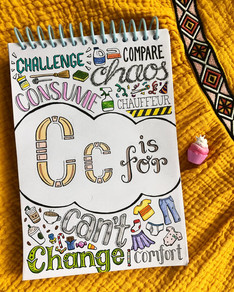 CHALLENGE
COMPARE
chaos
CONSUME
CHAUFFEUR
Cc is for
can't
Change
comfort